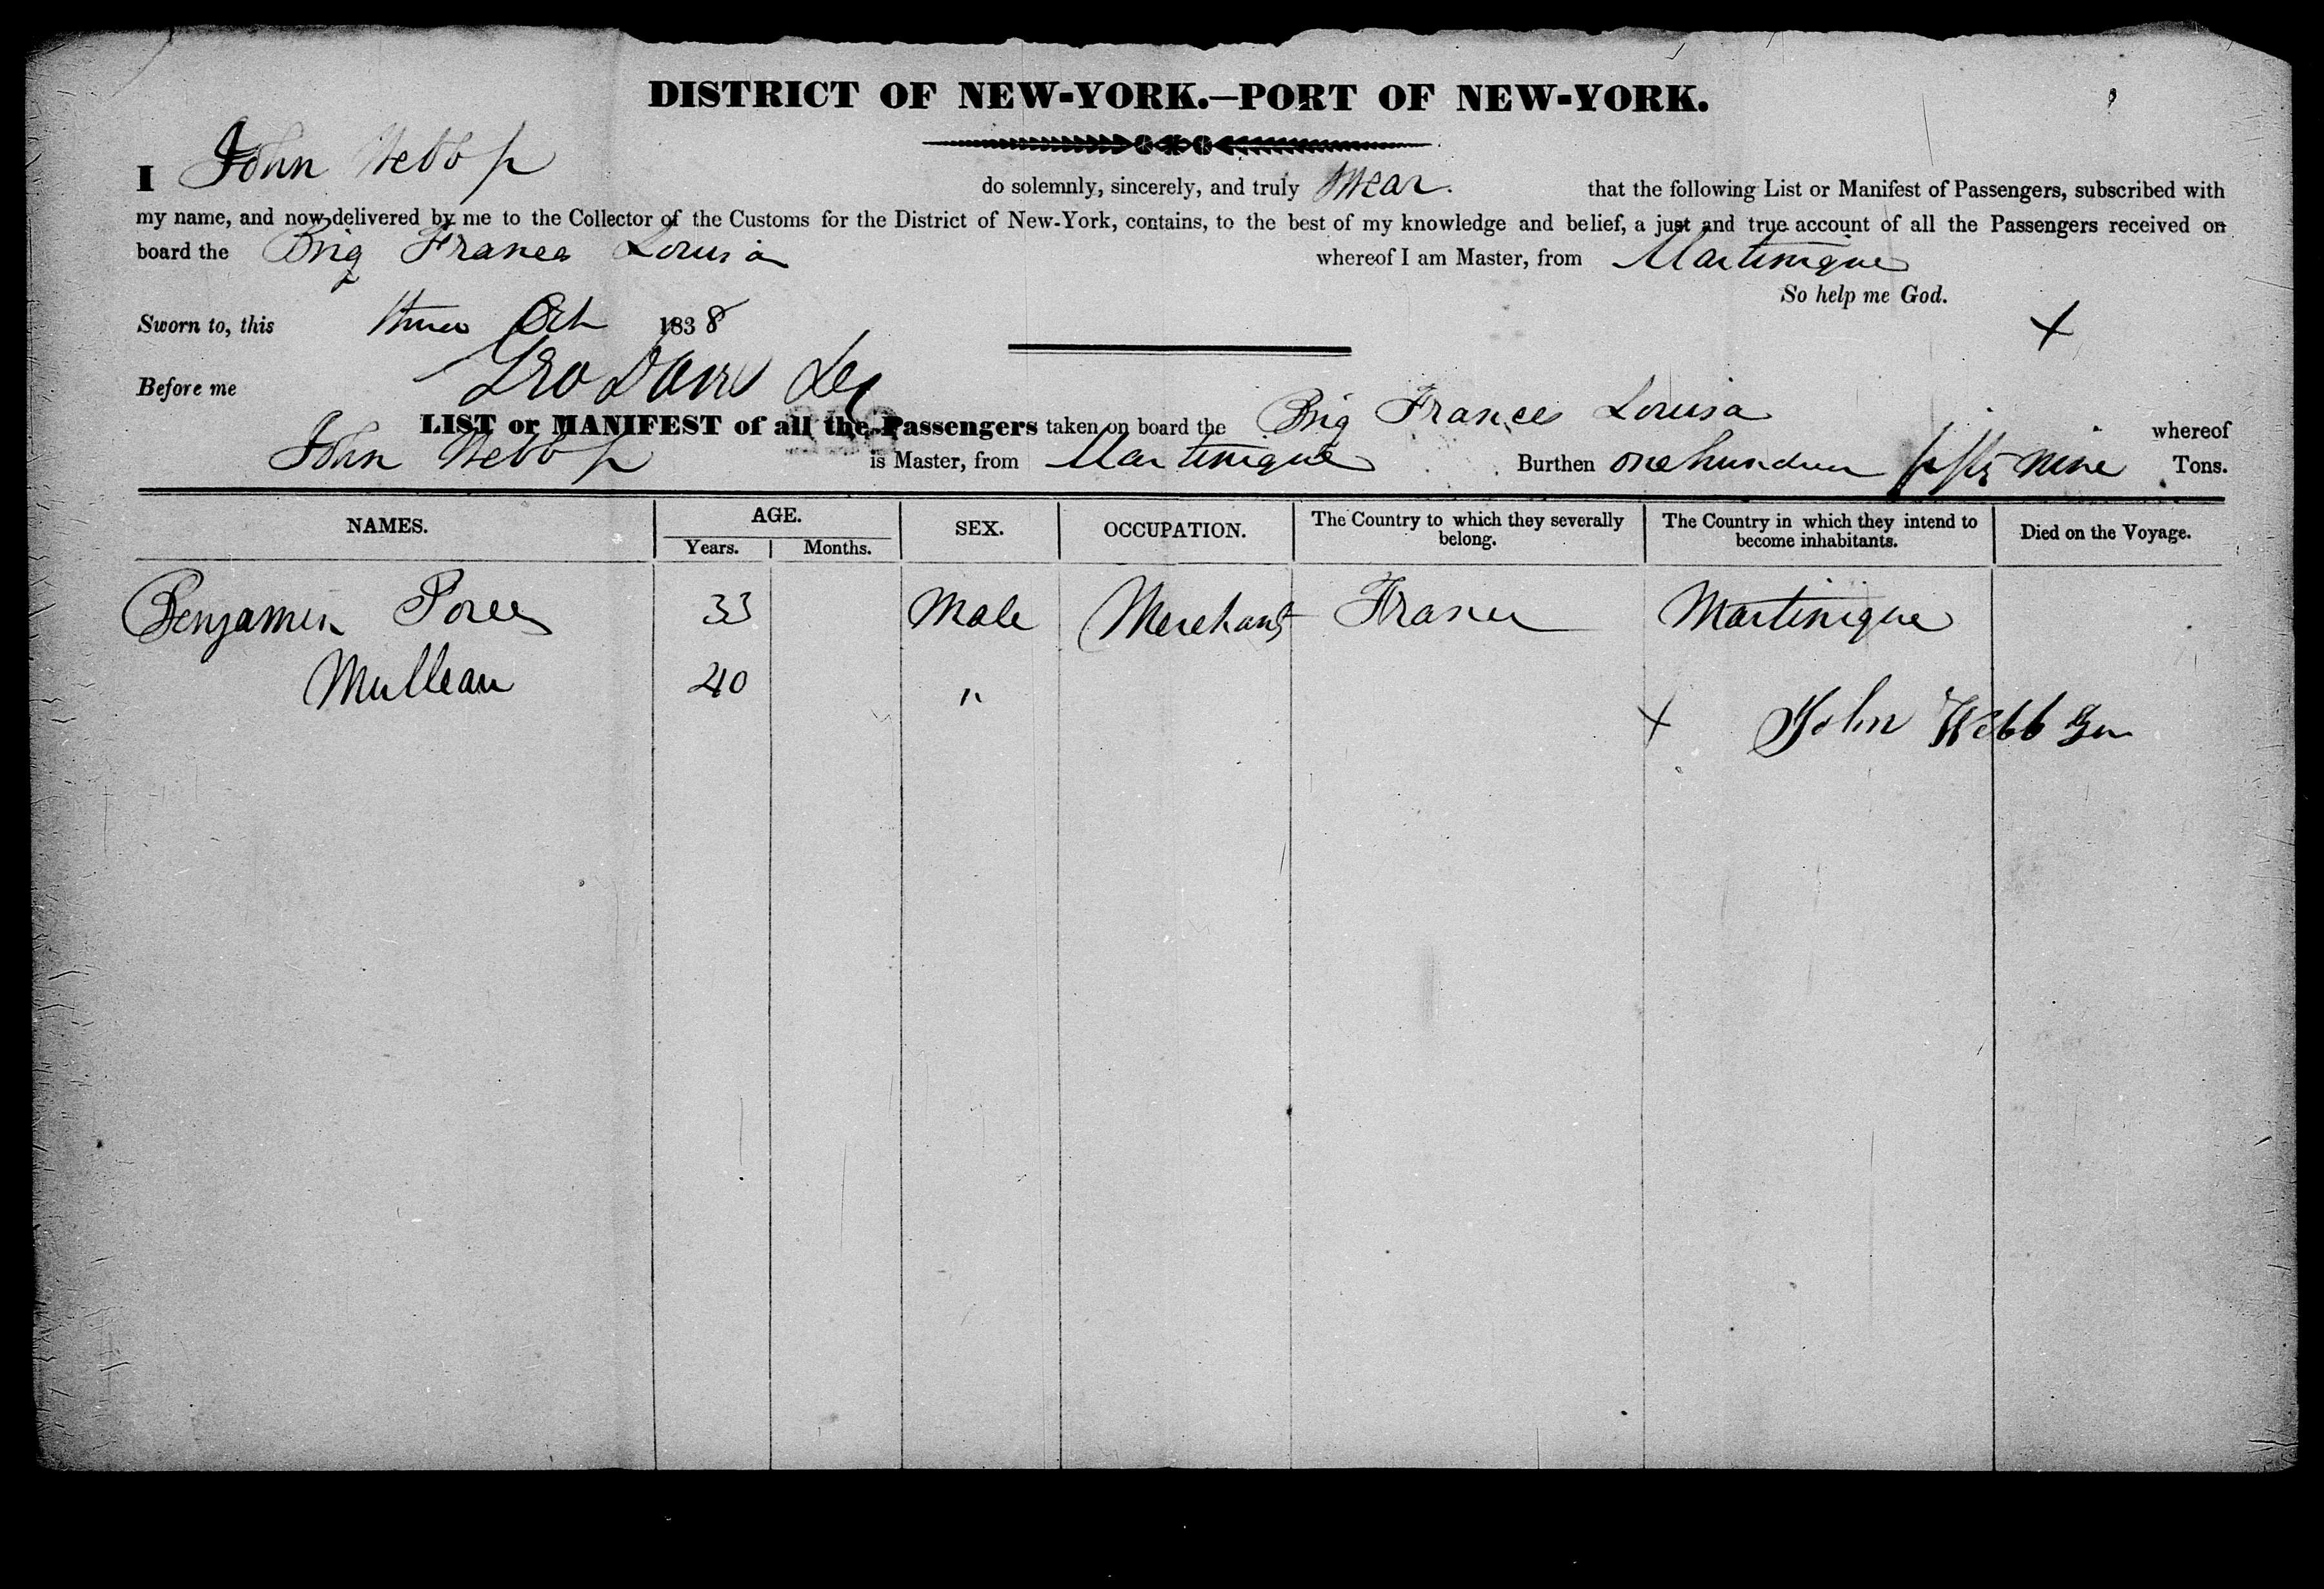 DISTRICT OF NEW-YORK.—PORT OF NEW-YORK.
I John Webb Jr do solemnly, sincerely, and truly swear that the following List or Manifest of Passengers, subscribed with
my name, and now delivered by me to the Collector of the Customs for the District of New-York, contains, to the best of my knowledge and belief, a just and true account of all the Passengers received on
board the Brig Frances Louisa whereof I am Master, from Martinique
So help me God.
Sworn to, this three Oct 1838
X
Before me Geo Davis
LIST or MANIFEST of all the Passengers taken on board the Brig Frances Louisa whereof
John Webb Jr is Master, from Martinique Burthen one hundred fifty nine Tons.
NAMES. AGE. SEX. OCCUPATION. The Country to which they severally belong. The Country in which they intend to become inhabitants. Died on the Voyage.
Years. Months.
Benjamin 33 Male Merchant France Martinique
40 "
X John Webb Jun